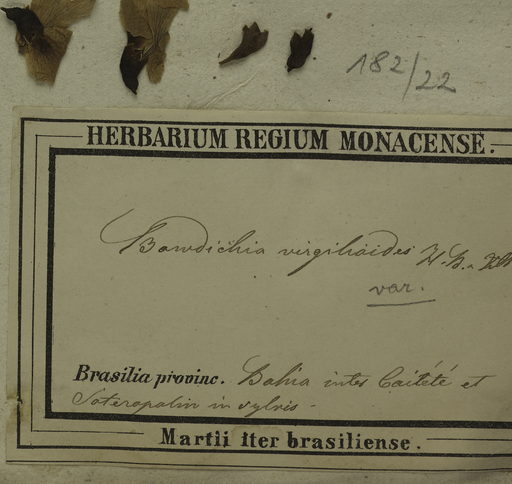 182/22
HERBARIUM REGIUM MONACENSE.
Bowdichia virgilioides H. B.
var.
Brasilia provinc. Bahia inter Caiteté et
Soteropolin in sylvis -
Martii Iter brasiliense.